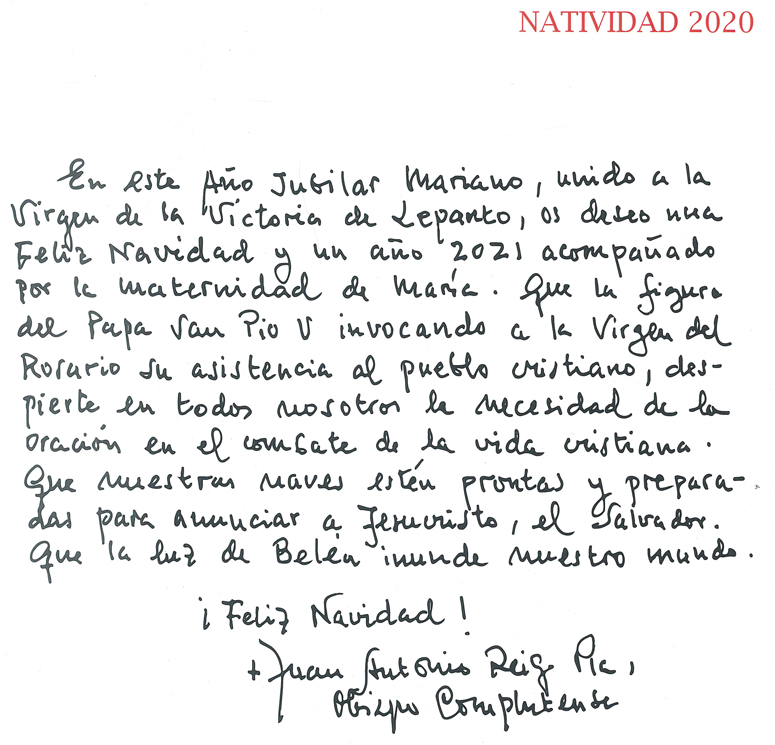 NATIVIDAD 2020
En este Año Jubilar Mariano, unido a la
Virgen de la Victoria de Lepanto, os deseo una
Feliz Navidad y un año 2021 acompañado
por la maternidad de María. Que la figura
del Papa San Pio V invocando a la Virgen del
Rosario su asistencia al pueblo cristiano, des-
pierte en todos nosotros la necesidad de la
oración en el combate de la vida cristiana.
Que nuestras naves estén prontas y prepara-
das para anunciar a Jesucristo, el Salvador.
Que la luz de Belén inunde nuestro mundo.
¡Feliz Navidad!
+ Juan Antonio Reig Pla,
Obispo Complutense